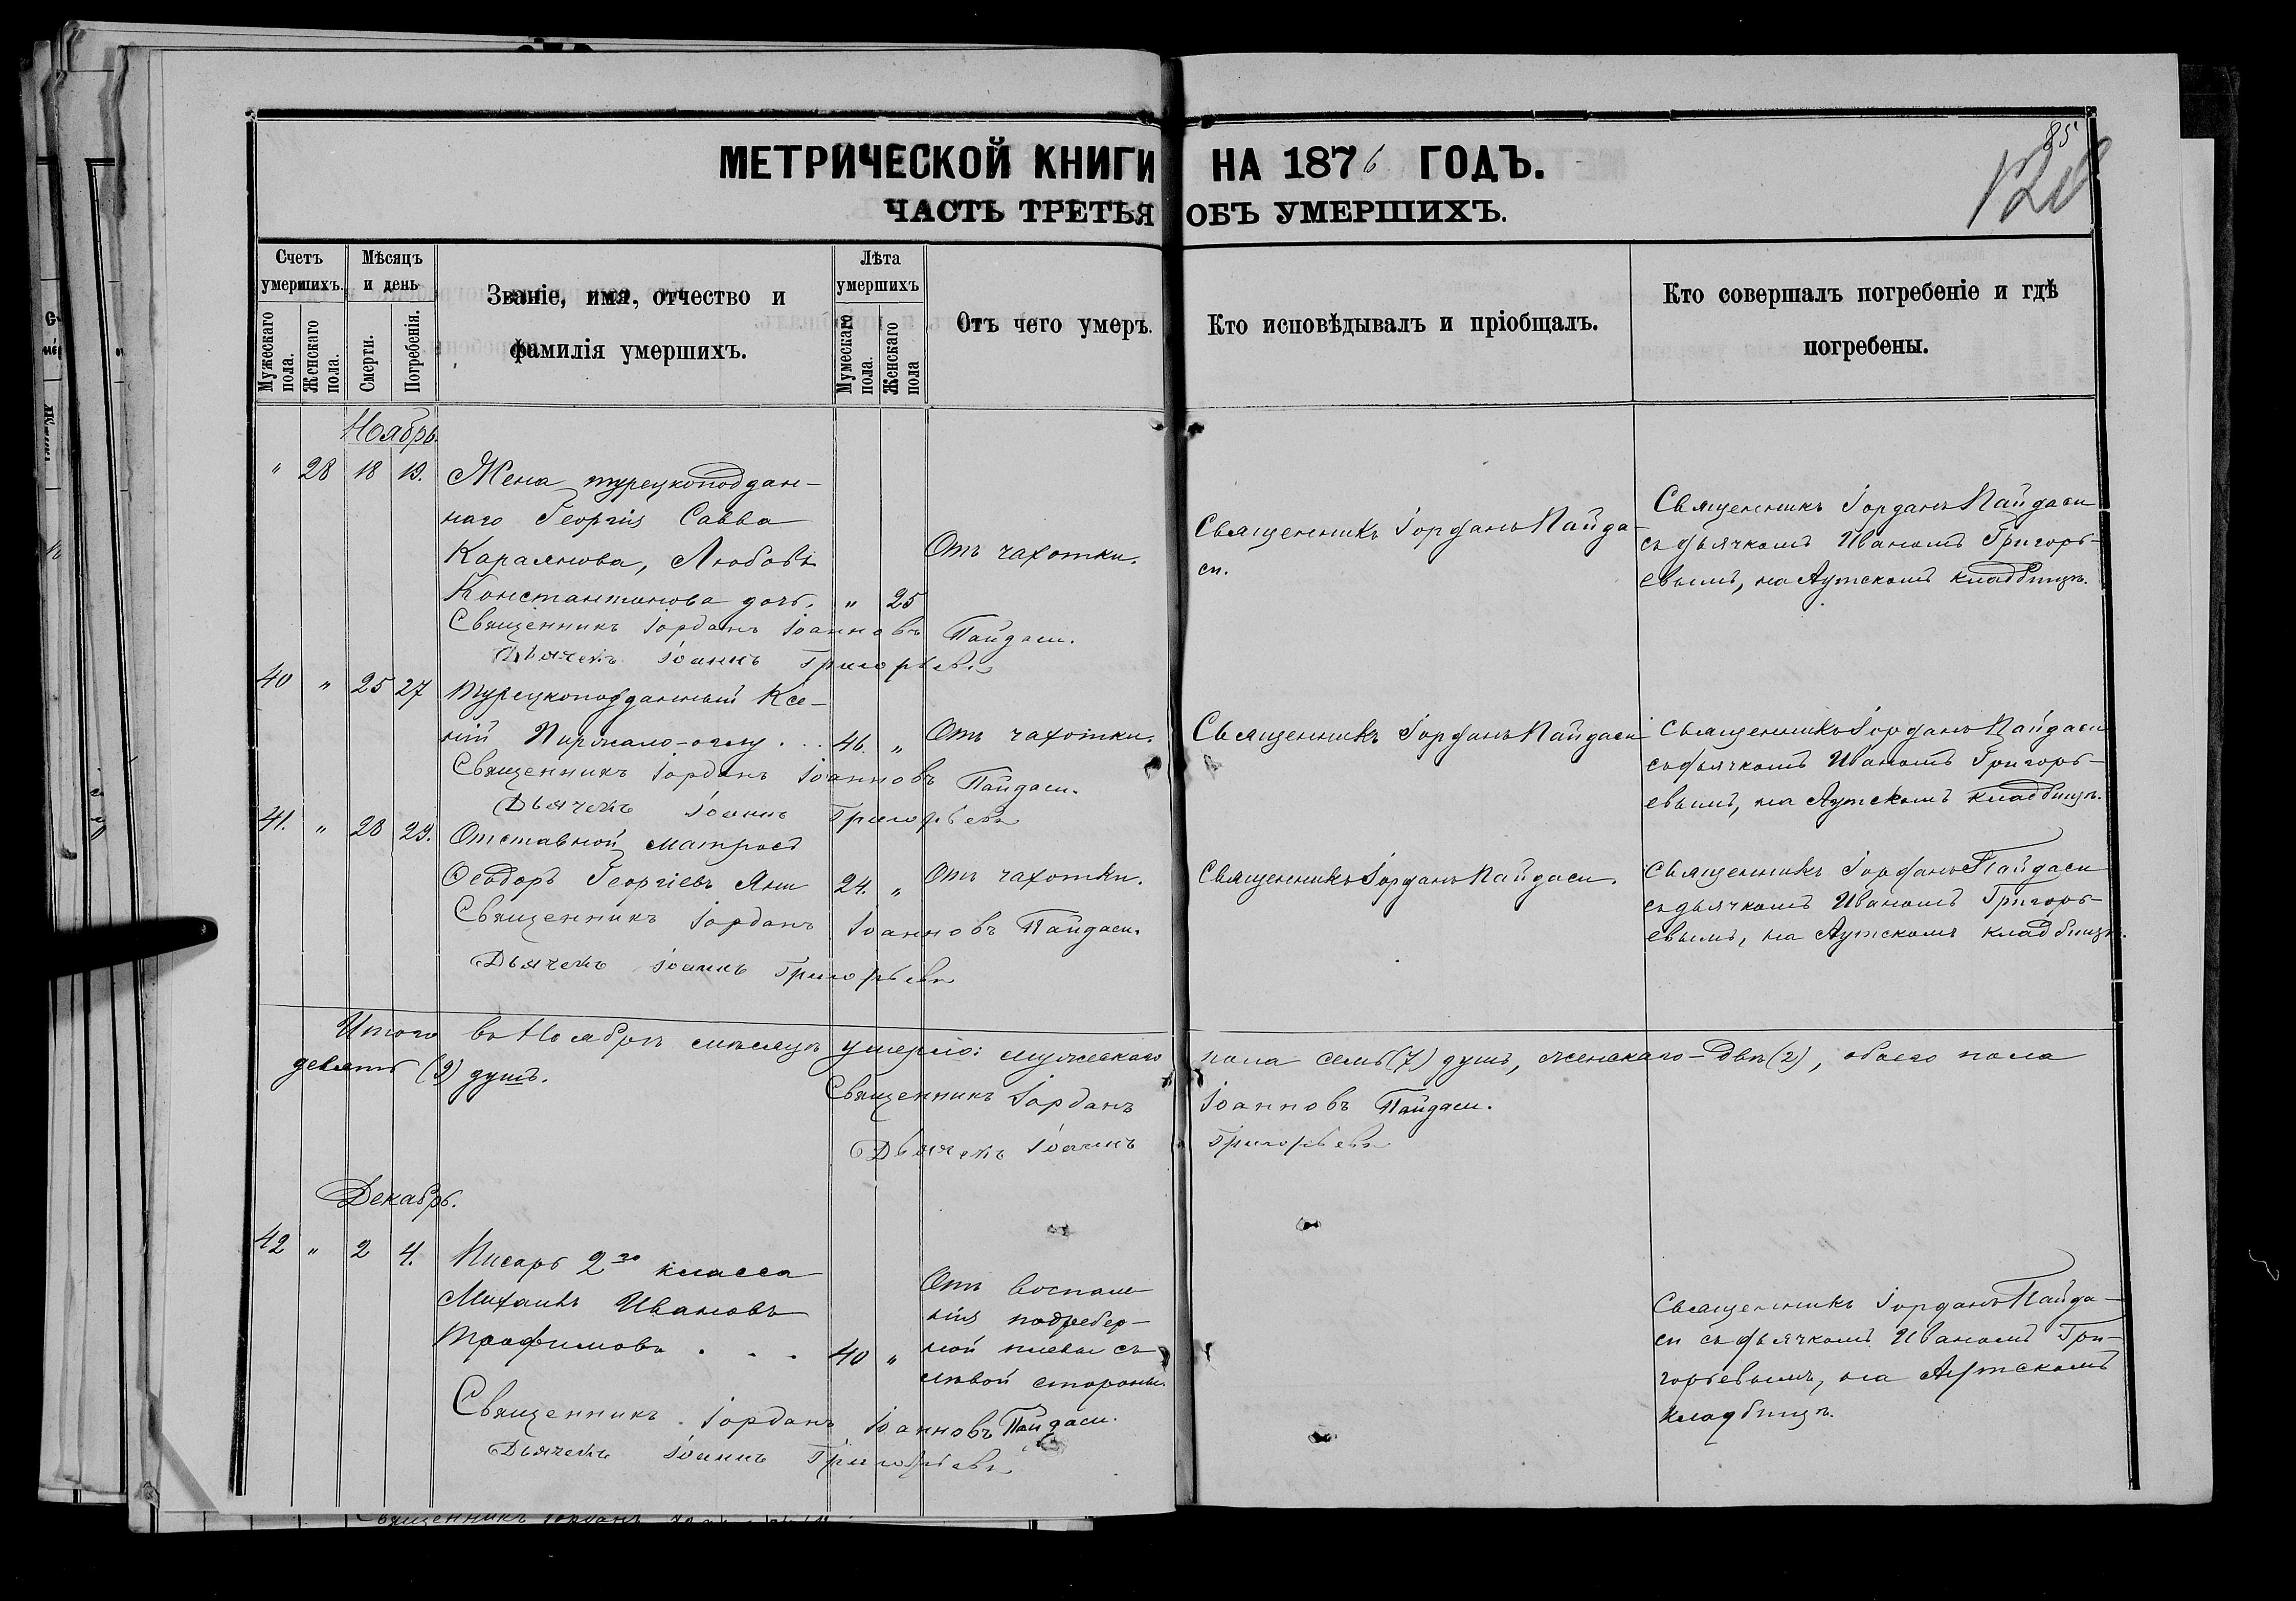 85
МЕТРИЧЕСКОЙ КНИГИ НА 1876 ГОДЪ.
ЧАСТЬ ТРЕТЬЯ ОБЪ УМЕРШИХЪ.
Счетъ умершихъ.
Мужескаго пола.
Женскаго пола.
Мѣсяцъ и день
Смерти.
Погребенія.
Званіе, имя, отчество и
фамилія умершихъ.
Лѣта умершихъ
Мумескаго пола.
Женскаго пола
Отъ чего умеръ.
Кто исповѣдывалъ и пріобщалъ.
Кто совершалъ погребеніе и гдѣ
погребены.
Ноябрь
" 28 18 19. Жена турецкоподдан-
наго Георгія Савва
Караянова, Любовь
Константинова дочь. " 25
Отъ чахотки.
Священникъ Іорданъ Пайда-
си.
Священникъ Іорданъ Пайдаси
съ дьячкомъ Иваномъ Григорь-
евымъ, на Аутскомъ кладбищѣ.
Священникъ Іорданъ Іоанновъ Пайдаси.
Дьячекъ Іоаннъ Григорьевъ
40 " 25 27 Турецкоподданный Ксе-
ній -оглу . . . 46. " Отъ чахотки.
Священникъ Іорданъ Пайдаси
Священникъ Іорданъ Пайдаси
съ дьячкомъ Иваномъ Григорь-
евымъ, на Аутскомъ кладбищѣ.
Священникъ Іорданъ Іоанновъ Пайдаси.
Дьячекъ Іоаннъ Григорьевъ
41. " 28 29. Отставной матросъ
Ѳеодоръ Георгіевъ Яни 24. " Отъ чахотки.
Священникъ Іорданъ Пайдаси.
Священникъ Іорданъ Пайдаси
съ дьячкомъ Иваномъ Григорь-
евымъ, на Аутскомъ кладбищѣ.
Священникъ Іорданъ Іоанновъ Пайдаси.
Дьячекъ Іоаннъ Григорьевъ
Итого въ Ноябрѣ мѣсяцѣ умерло: мужескаго пола семь (7) душъ, женскаго – двѣ (2), обоего пола
девять (9) душъ.
Священникъ Іорданъ Іоанновъ Пайдаси.
Дьячекъ Іоаннъ Григорьевъ
Декабрь.
42 " 2 4. Писарь 2го класса
Михаилъ Ивановъ
Трофимовъ . . . 40 "
Отъ воспале
нія подребер-
ной плевы съ
лѣвой стороны.
Священникъ Іорданъ Пайда-
си съ дьячкомъ Иваномъ Гри-
горьевымъ, на Аутскомъ
кладбищѣ.
Священникъ Іорданъ Іоанновъ Пайдаси.
Дьячекъ Іоаннъ Григорьевъ